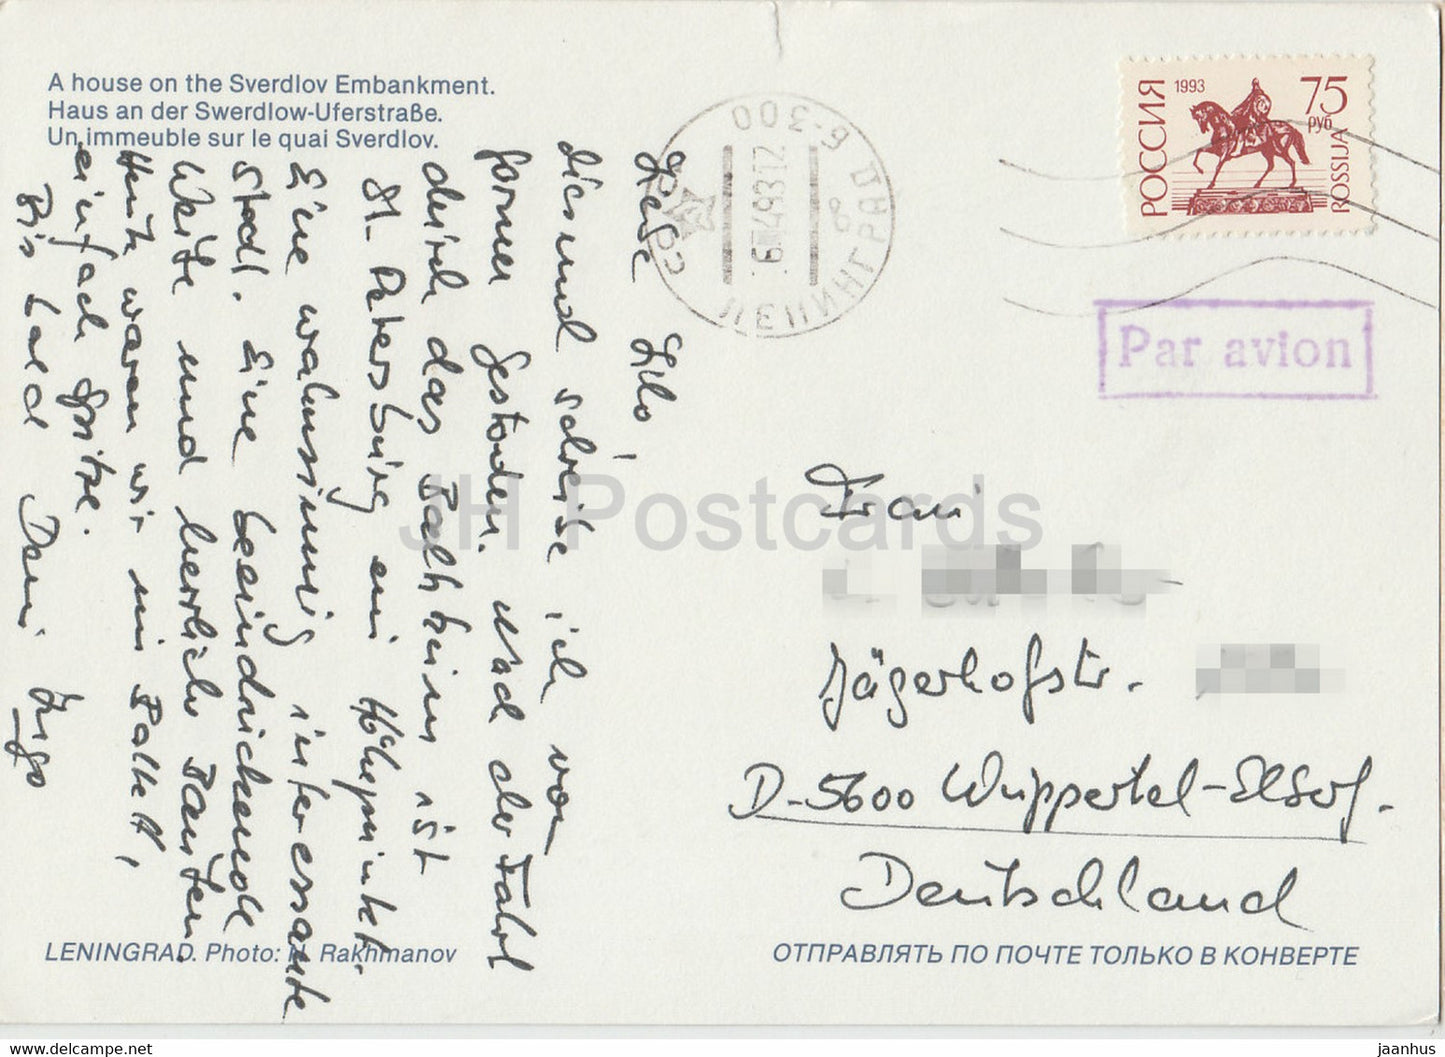 A house on the Sverdlov Embankment.
Haus an der Swerdlow-Uferstraße.
Un immeuble sur le quai Sverdlov.
Liebe Lilo,
diesmal schreibe ich von
ferner Gestaden. Nach der Fahrt
durch das Baltikum ist
St. Petersburg ein Höhepunkt.
Eine wahnsinnig interessante
Stadt. Eine beeindruckende
Weite und herrliche Bauten.
Heute waren wir im Ballett,
einfach Spitze.
Bis bald Dein Ingo
LENINGRAD. Photo: Rakhmanov
300
6 4 93 12
ЛЕНИНГРАД
РОССИЯ
1993
75
руб
ROSSIJA
Par avion
Frau
Jägerhofstr.
D-5600 Wuppertal-Elberf.
Deutschland
ОТПРАВЛЯТЬ ПО ПОЧТЕ ТОЛЬКО В КОНВЕРТЕ
JH Postcards
www.delcampe.net
jaanhus